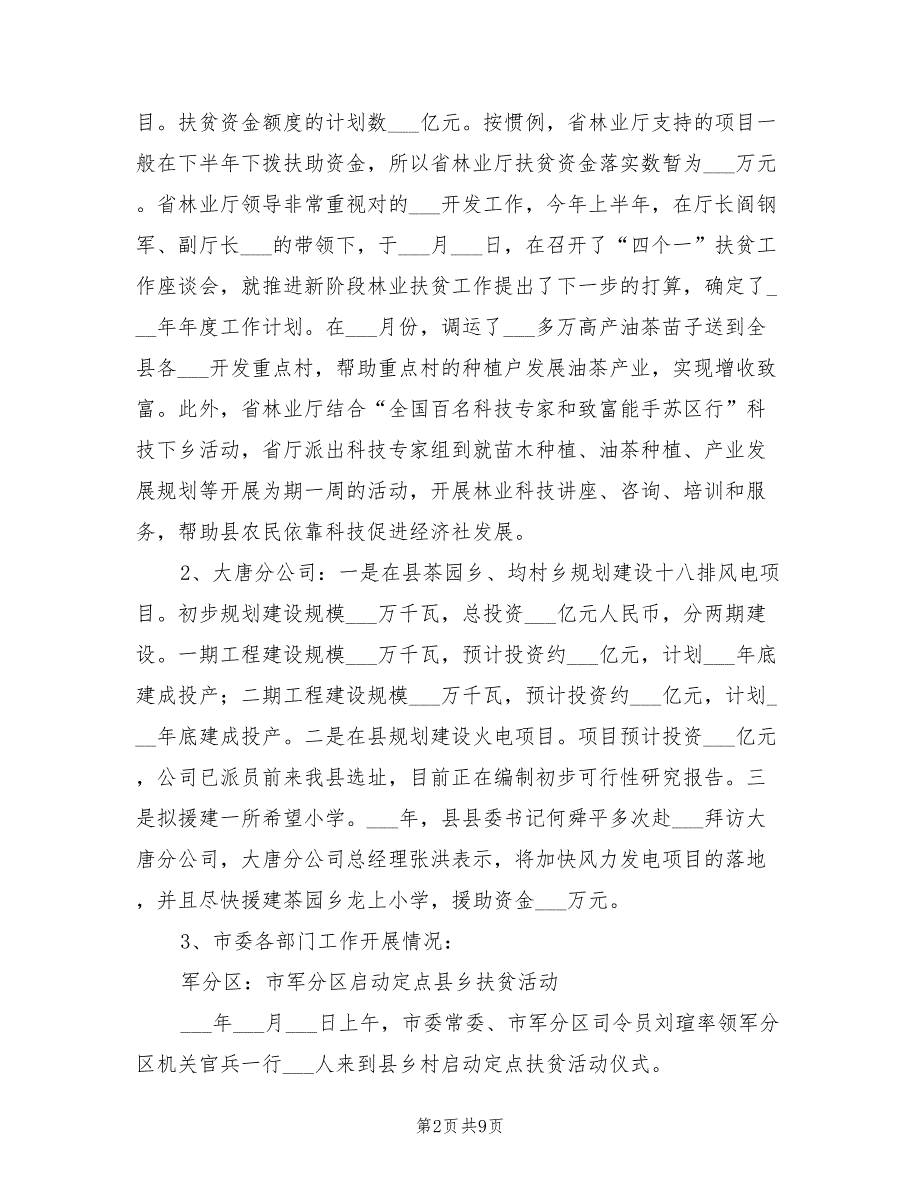 目。扶贫资金额度的计划数___亿元。按惯例，省林业厅支持的项目一
般在下半年下拨扶助资金，所以省林业厅扶贫资金落实数暂为___万元
。省林业厅领导非常重视对的___开发工作，今年上半年，在厅长阎钢
军、副厅长___的带领下，于___月___日，在召开了“四个一”扶贫工
作座谈会，就推进新阶段林业扶贫工作提出了下一步的打算，确定了_
__年年度工作计划。在___月份，调运了___多万高产油茶苗子送到全
县各___开发重点村，帮助重点村的种植户发展油茶产业，实现增收致
富。此外，省林业厅结合“全国百名科技专家和致富能手苏区行”科
技下乡活动，省厅派出科技专家组到就苗木种植、油茶种植、产业发
展规划等开展为期一周的活动，开展林业科技讲座、咨询、培训和服
务，帮助县农民依靠科技促进经济社发展。
2、大唐分公司：一是在县茶园乡、均村乡规划建设十八排风电项
目。初步规划建设规模___万千瓦，总投资___亿元人民币，分两期建
设。一期工程建设规模___万千瓦，预计投资约___亿元，计划___年底
建成投产；二期工程建设规模___万千瓦，预计投资约___亿元，计划_
__年底建成投产。二是在县规划建设火电项目。项目预计投资___亿元
，公司已派员前来我县选址，目前正在编制初步可行性研究报告。三
是拟援建一所希望小学。___年，县县委书记何舜平多次赴___拜访大
唐分公司，大唐分公司总经理张洪表示，将加快风力发电项目的落地
，并且尽快援建茶园乡龙上小学，援助资金___万元。
3、市委各部门工作开展情况：
军分区：市军分区启动定点县乡扶贫活动
___年___月___日上午，市委常委、市军分区司令员刘瑄率领军分
区机关官兵一行___人来到县乡村启动定点扶贫活动仪式。
第2页 共9页